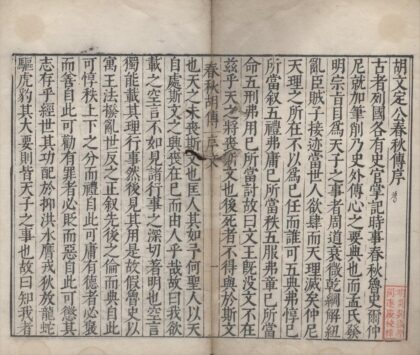 胡文定公春秋傳序
古者列國各有史官掌記時事春秋魯史爾仲
尼就加筆削乃史外傳心之要典也而孟氏發
明宗旨目爲天子之事者周道衰微乾綱解紐
亂臣賊子接迹當世人欲肆而天理滅矣仲尼
天理之所在不以爲已任而誰可五典弗惇已
所當叙五禮弗庸已所當秩五服弗章已所當
命五刑弗用已所當討故曰文王既沒文不在
兹乎天之將喪斯文也後死者不得與於斯文
春秋胡傳 序 一
也天之未喪斯文也匡人其如予何聖人以天
自處斯文之興喪在已而由人乎哉故曰我欲
載之空言不如見諸行事之深切著明也空言
獨能載其理行事然後見其用是故假魯史以
寓王法撥亂世反之正叙先後之倫而典自此
可惇秩上下之分而禮自此可庸有德者必褒
而善自此可勸有罪者必貶而惡自此可懲其
志存乎經世其功配於抑洪水膺戎狄放龍蛇
驅虎豹其大要則皆天子之事也故曰知我者